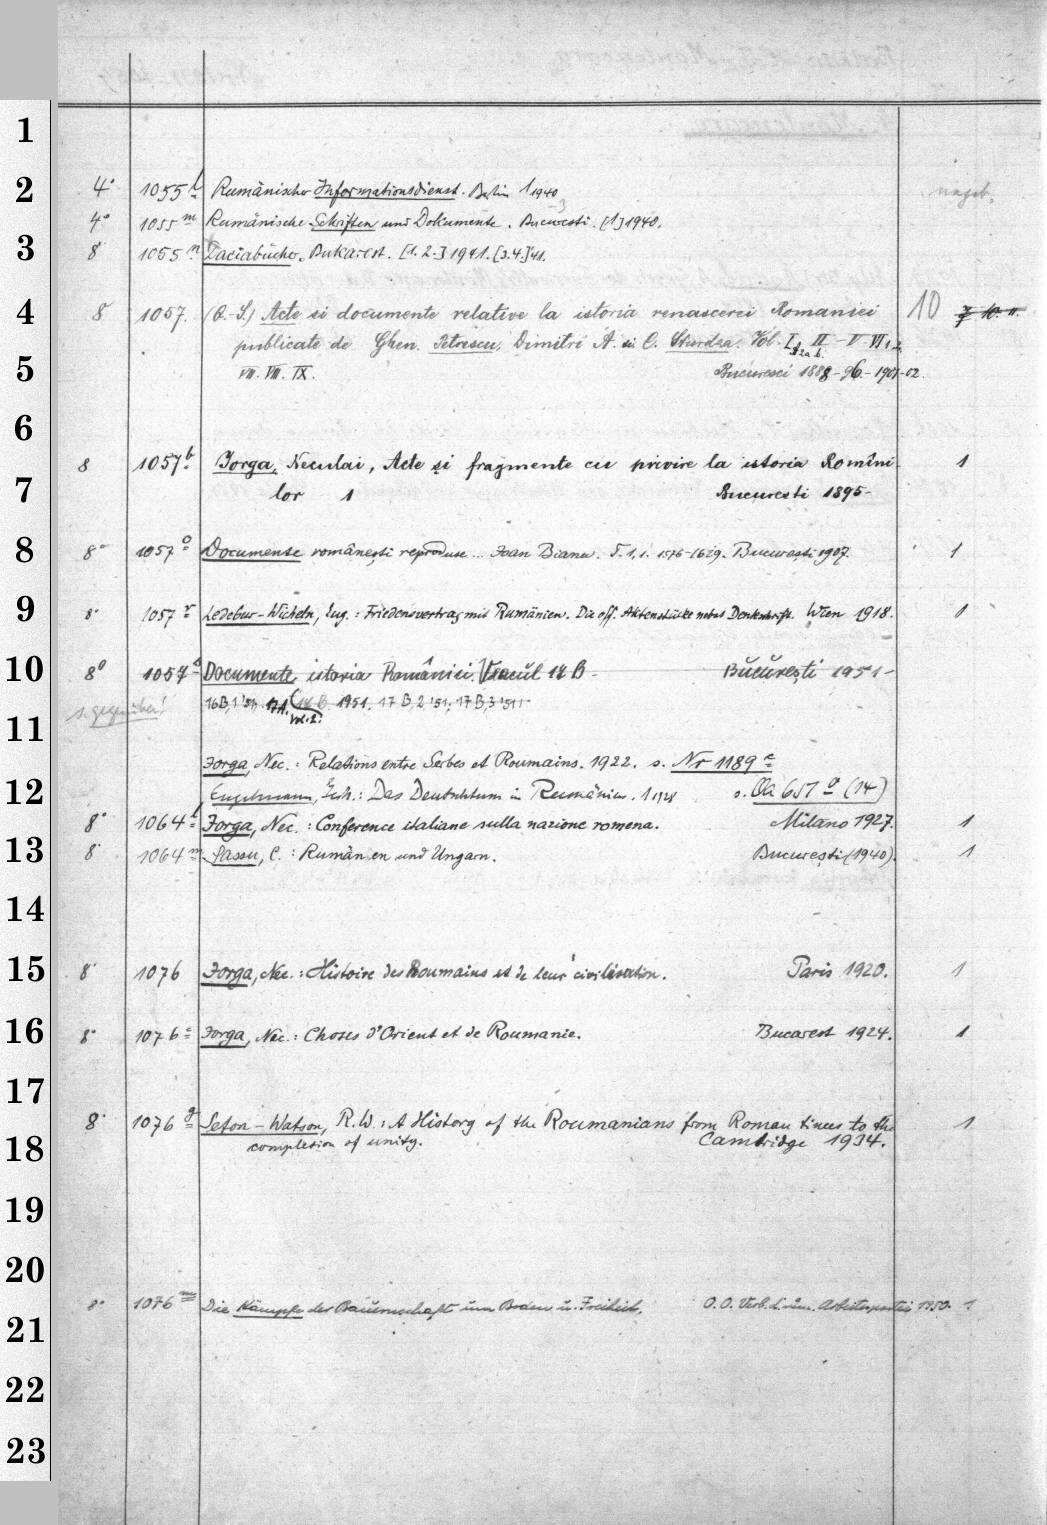 1
2 4° 1055 l Rumänischer Informationsdienst. Berlin 1 1940 ungeb.
4° 1055 m Rumänische Schriften und Dokumente. Bucuresti. [1] 1940.
3 8° 1055 n Daciabücher. Bukarest. [1. 2.] 1941. [3.4.] 41.
4 8° 1057. (O.-S.) Acte si documente relative la istoria renascerei Romaniei 10
publicate de Ghen. Petrescu, Dimitri A. si C. Sturdza. Vol. I, II - V - VI 1. 2
5 VII. VIII. IX. Bucuresci 1888-96.-1901-02.
6
8 1057 b Jorga, Neculai, Acte şi fragmente cu privire la istoria Romîni- 1
7 lor 1 Bucuresti 1895-
8 8° 1057 o Documente româneşti reproduse... Joan Bianu. T. 1, 1. 1576-1629. Bucureşti 1907. 1
9 8° 1057 r Ledebur-Wicheln, Eug.: Friedensvertrag mit Rumänien. Die off. Aktenstücke nebst Denkschrift. Wien 1918. 1
10 8° 1057 s Documente, istoria României. Veacul 14 B - Bucureşti 1951-
s. gegenüber! 16B,1 '51, 17A. vol. 2. 1951. 17 B,2 '51; 17 B,3 '51
11
Jorga, Nec.: Relations entre Serbes et Roumains. 1922. s. Nr 1189 c
12 Engelmann, Erh.: Das Deutschtum in Rumänien. 1 1928 s. Oa 657 o (14)
8° 1064 l Jorga, Nec.: Conference italiane sulla nazione romena. Milano 1927. 1
13 8° 1064 m Sassu, C.: Rumänien und Ungarn. Bucureşti (1940). 1
14
15 8° 1076 Jorga, Nec.: Histoire des Roumains et de leur civilisation. Paris 1920. 1
16 8° 1076 c Jorga, Nec.: Choses d'Orient et de Roumanie. Bucarest 1924. 1
17
8° 1076 g Seton-Watson, R.W.: A History of the Roumanians from Roman times to the 1
18 completion of unity. Cambridge 1934.
19
20
8° 1076 m Die Kämpfe der Bauernschaft um Boden u. Freiheit. O.O. Verl. d. rum. Arbeiterpartei 1950. 1
21
22
23